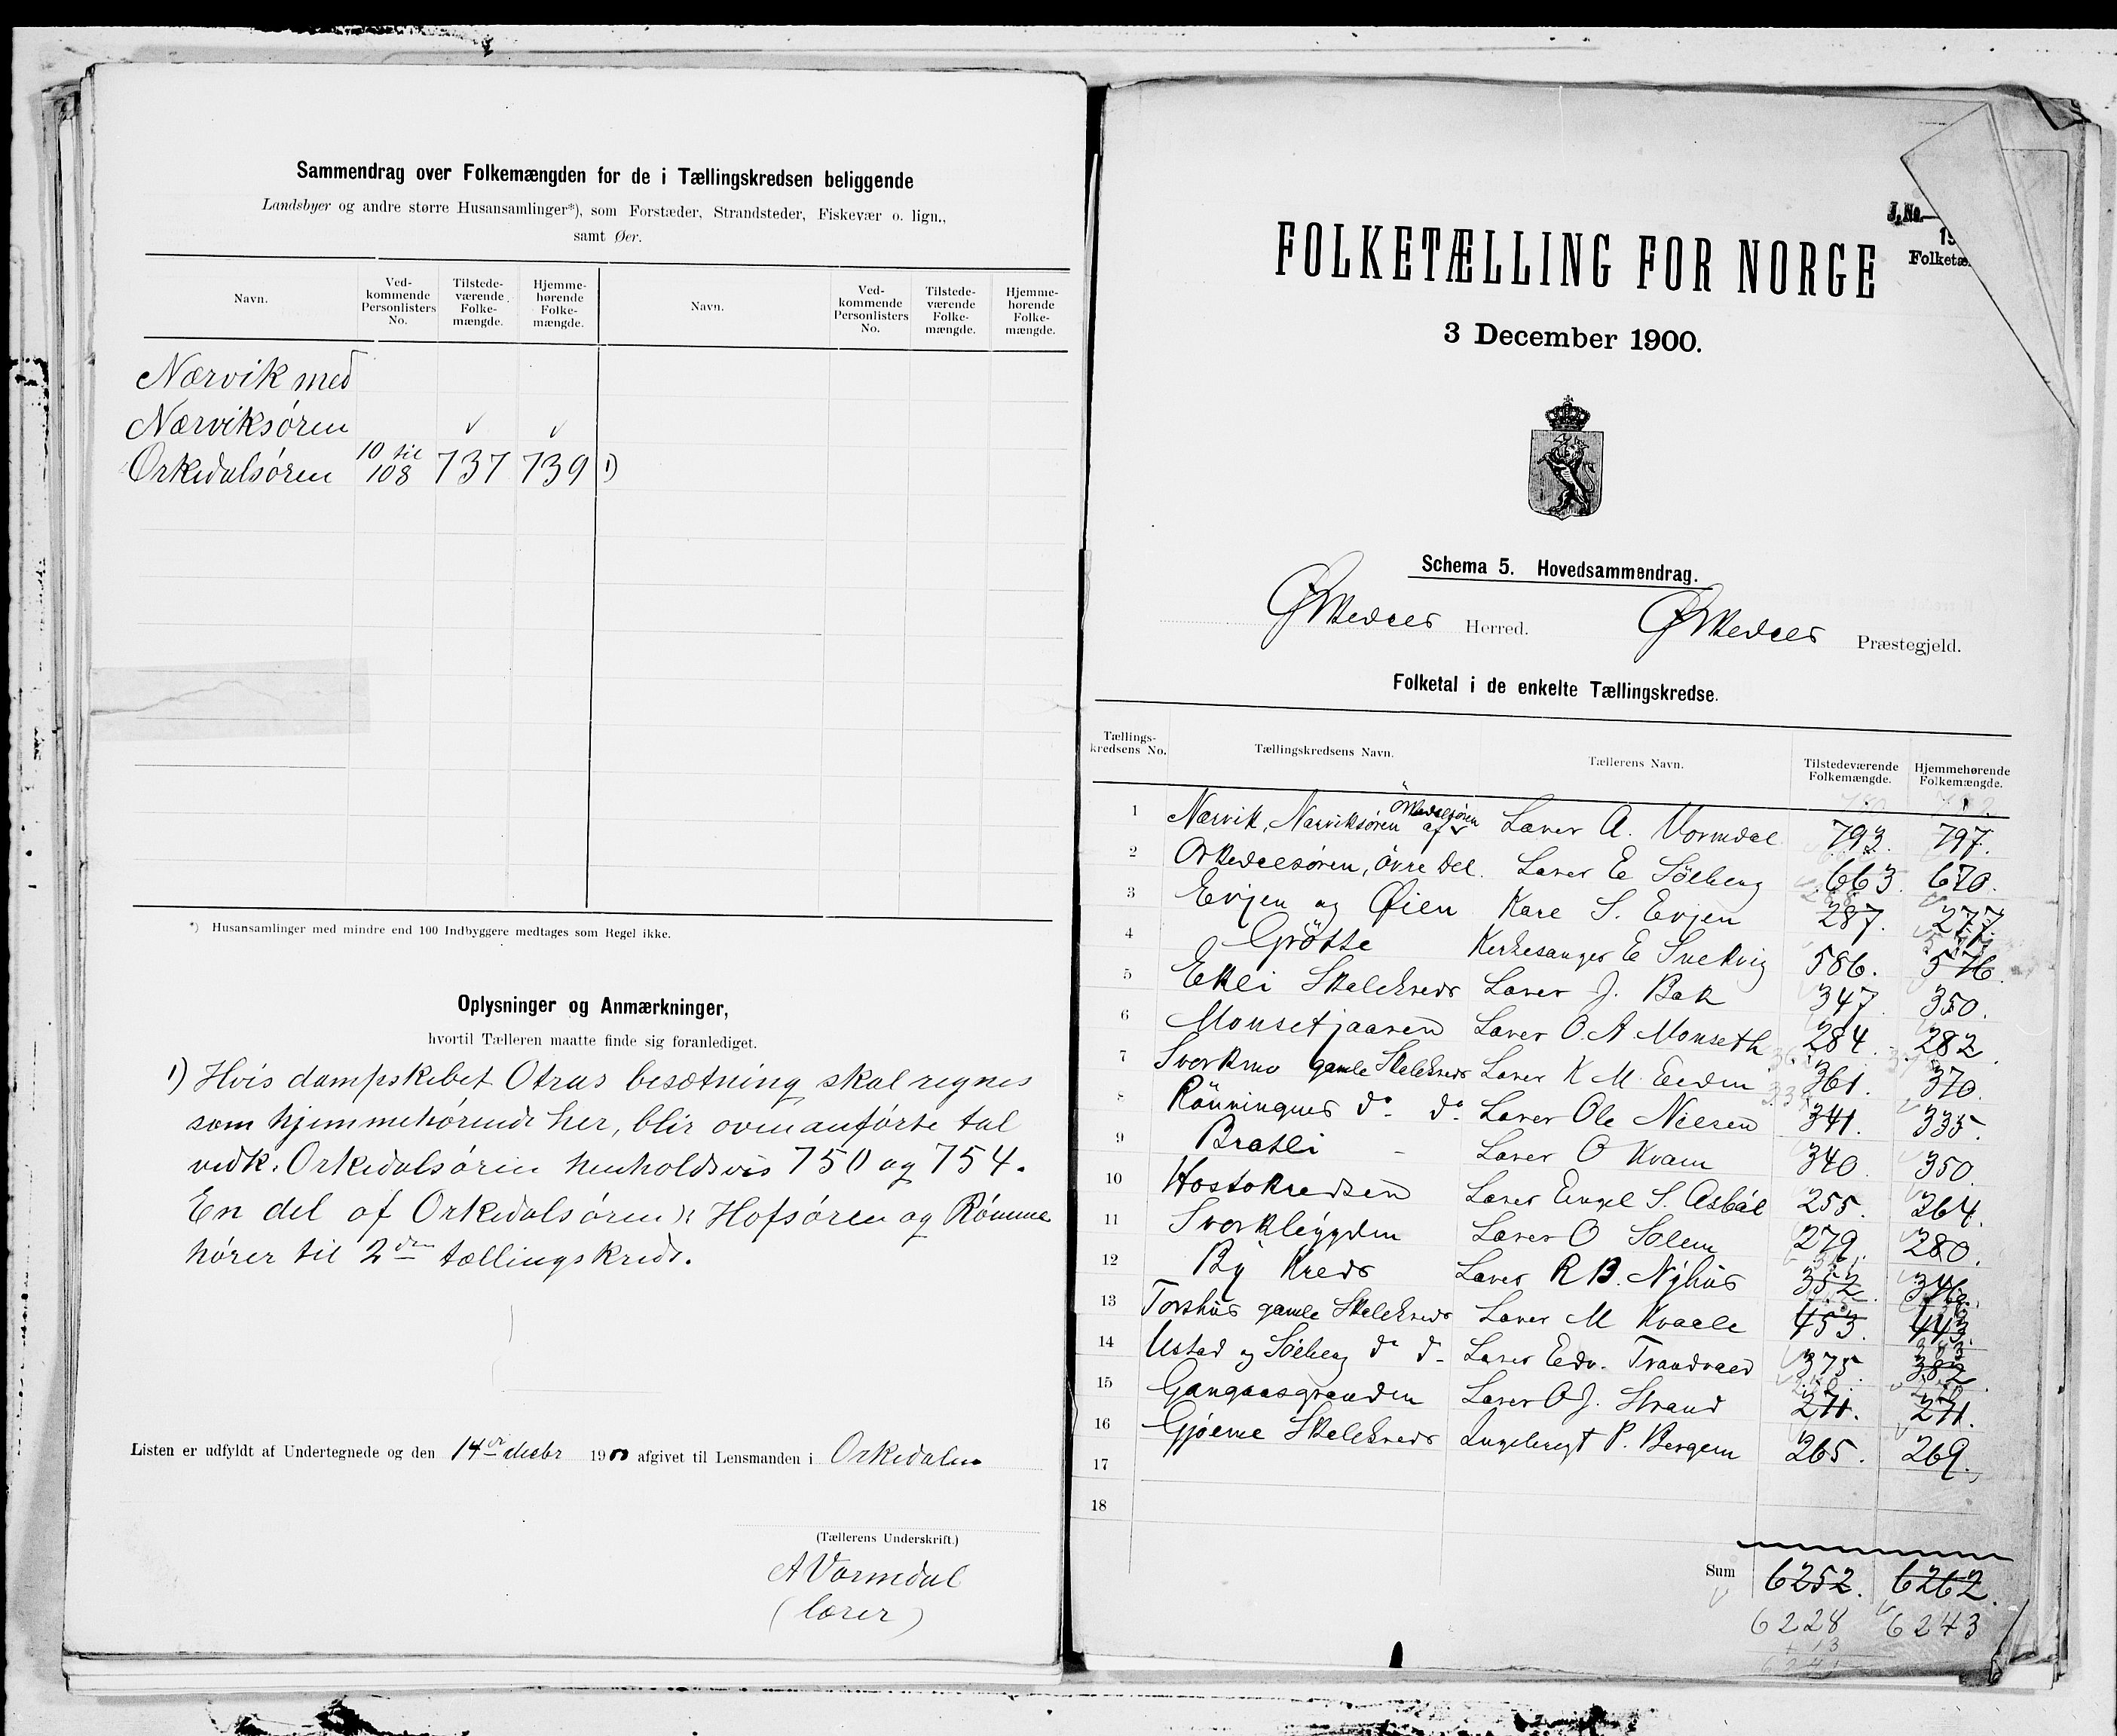 Sammendrag over Folkemængden for de i Tællingskredsen beliggende
Landsbyer og andre større Husansamlinger*), som Forstæder, Strandsteder, Fiskevær o. lign.,
samt Øer.
Navn. Ved-kommende Personlisters No. Tilstede-værende Folke-mængde. Hjemme-hørende Folke-mængde. Navn. Ved-kommende Personlisters No. Tilstede-værende Folke-mængde. Hjemme-hørende Folke-mængde.
Nærvik med
Nærviksøren
Orkedalsøren 10 til 108 737 739 1)
*) Husansamlinger med mindre end 100 Indbyggere medtages som Regel ikke.
Oplysninger og Anmærkninger,
hvortil Tælleren maatte finde sig foranlediget.
1) Hvis dampskibet Otras besætning skal regnes
som hjemmehørende her, blir ovenanførte tal
vedk. Orkedalsøren henholdsvis 750 og 754.
En del af Orkedalsøren): Hofsøren og Rømme
hører til 2den tællingskreds.
Listen er udfyldt af Undertegnede og den 14de decbr 1900 afgivet til Lensmanden i Orkedalen
(Tællerens Underskrift.)
A Vormdal
(lærer)
J. No.
19
Folketæ
FOLKETÆLLING FOR NORGE
3 December 1900.
Schema 5. Hovedsammendrag.
Ørkedals Herred. Ørkedals Præstegjeld.
Folketal i de enkelte Tællingskredse.
Tællings-kredsens No. Tællingskredsens Navn. Tællerens Navn. Tilstedeværende Folkemængde. Hjemmehørende Folkemængde.
1 Nærvik, Nærviksøren af Orkedalsøren Lærer A. Vormdal 793. 797.
2 Orkedalsøren, øvre Del. Lærer E Sølberg 663. 670.
3 Evjen og Øien Kare S. Evjen 287. 277.
4 Grøtte Kirkesanger E Snekvig 586. 576.
5 Ekli Skolekreds Lærer J. Bak 347 350.
6 Monsetjaaren Lærer O. A. Monseth 284. 282.
7 Svorkmo gamle Skolekreds Lærer K M. 361. 370.
8 Rønningnes do. do. Lærer Ole Nilsen 341. 335.
9 Bratli - Lærer O Kvam 340. 350.
10 Hostokredsen Lærer Engel S. Asbøl 255. 264.
11 Svorkbygden Lærer O Solem 279. 280.
12 By Kreds Lærer R B. Nyhus 352. 346.
13 Torshus gamle Skolekreds Lærer M Kvaale 453. 443.
14 Ustad og Sølberg do d- Lærer Edv. 375. 382.
15 Gangaasgrenden Lærer O J. Strand 271. 271.
16 Gjølme Skolekreds Ingebrigt P. Bergem 265. 269.
17
18
Sum 6252. 6262.
6228 6243
+ 13
6241